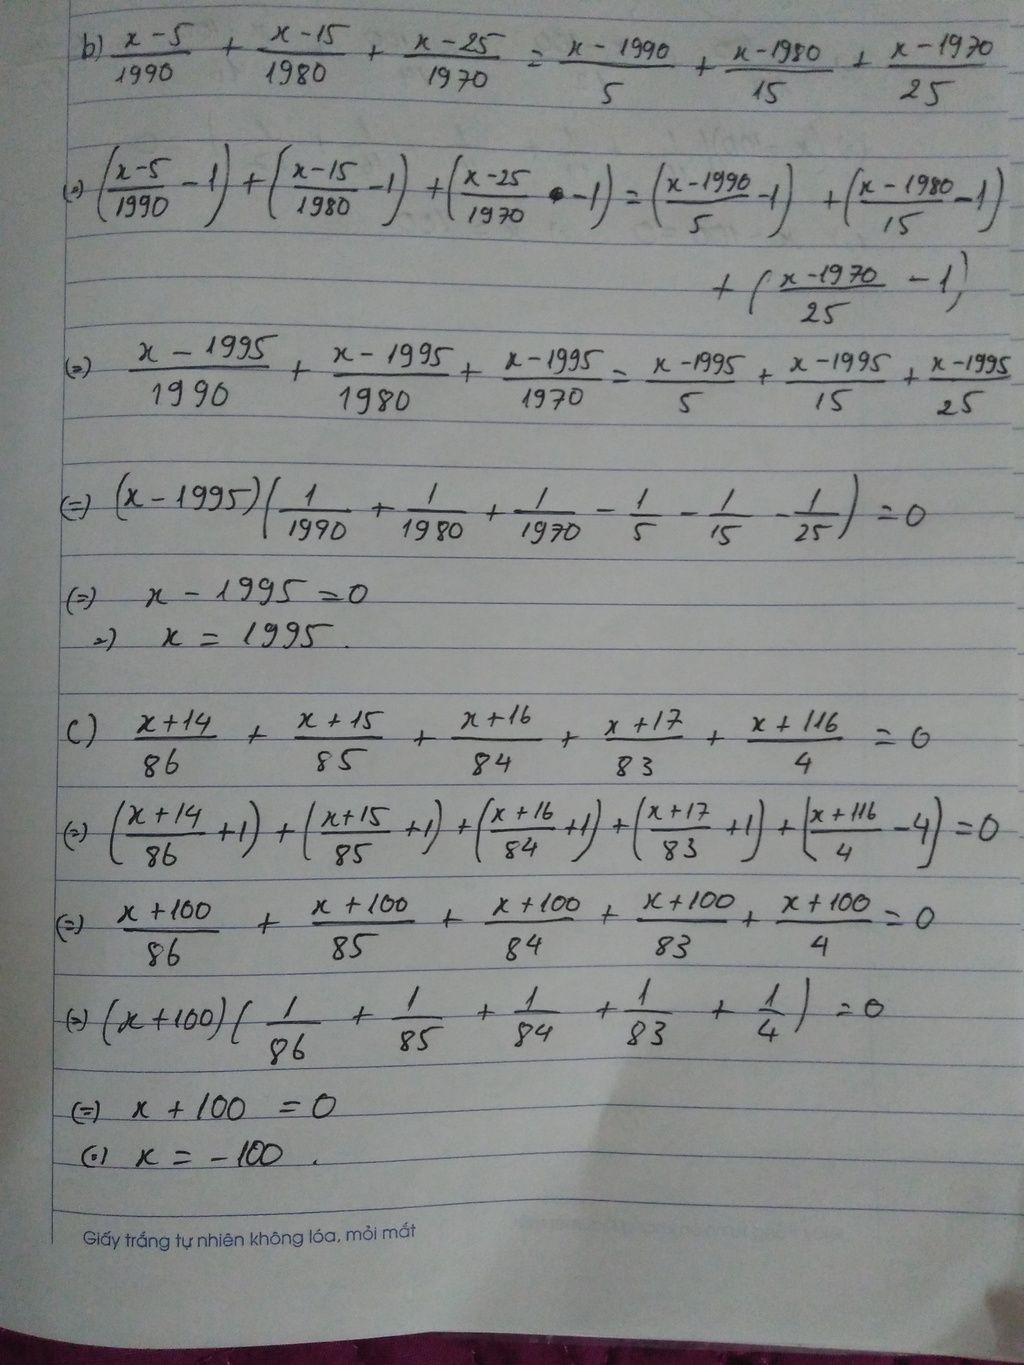 b) (x-5)/1990 + (x-15)/1980 + (x-25)/1970 = (x-1990)/5 + (x-1980)/15 + (x-1970)/25
(=) ((x-5)/1990 - 1) + ((x-15)/1980 - 1) + ((x-25)/1970 - 1) = ((x-1990)/5 - 1) + ((x-1980)/15 - 1)
+ ((x-1970)/25 - 1)
(=) (x-1995)/1990 + (x-1995)/1980 + (x-1995)/1970 = (x-1995)/5 + (x-1995)/15 + (x-1995)/25
(=) (x-1995)(1/1990 + 1/1980 + 1/1970 - 1/5 - 1/15 - 1/25) = 0
(=) x - 1995 = 0
=) x = 1995.
c) (x+14)/86 + (x+15)/85 + (x+16)/84 + (x+17)/83 + (x+116)/4 = 0
(=) ((x+14)/86 + 1) + ((x+15)/85 + 1) + ((x+16)/84 + 1) + ((x+17)/83 + 1) + ((x+116)/4 - 4) = 0
(=) (x+100)/86 + (x+100)/85 + (x+100)/84 + (x+100)/83 + (x+100)/4 = 0
(=) (x+100)(1/86 + 1/85 + 1/84 + 1/83 + 1/4) = 0
(=) x + 100 = 0
(=) x = -100.
Giấy trắng tự nhiên không lóa, mỏi mắt